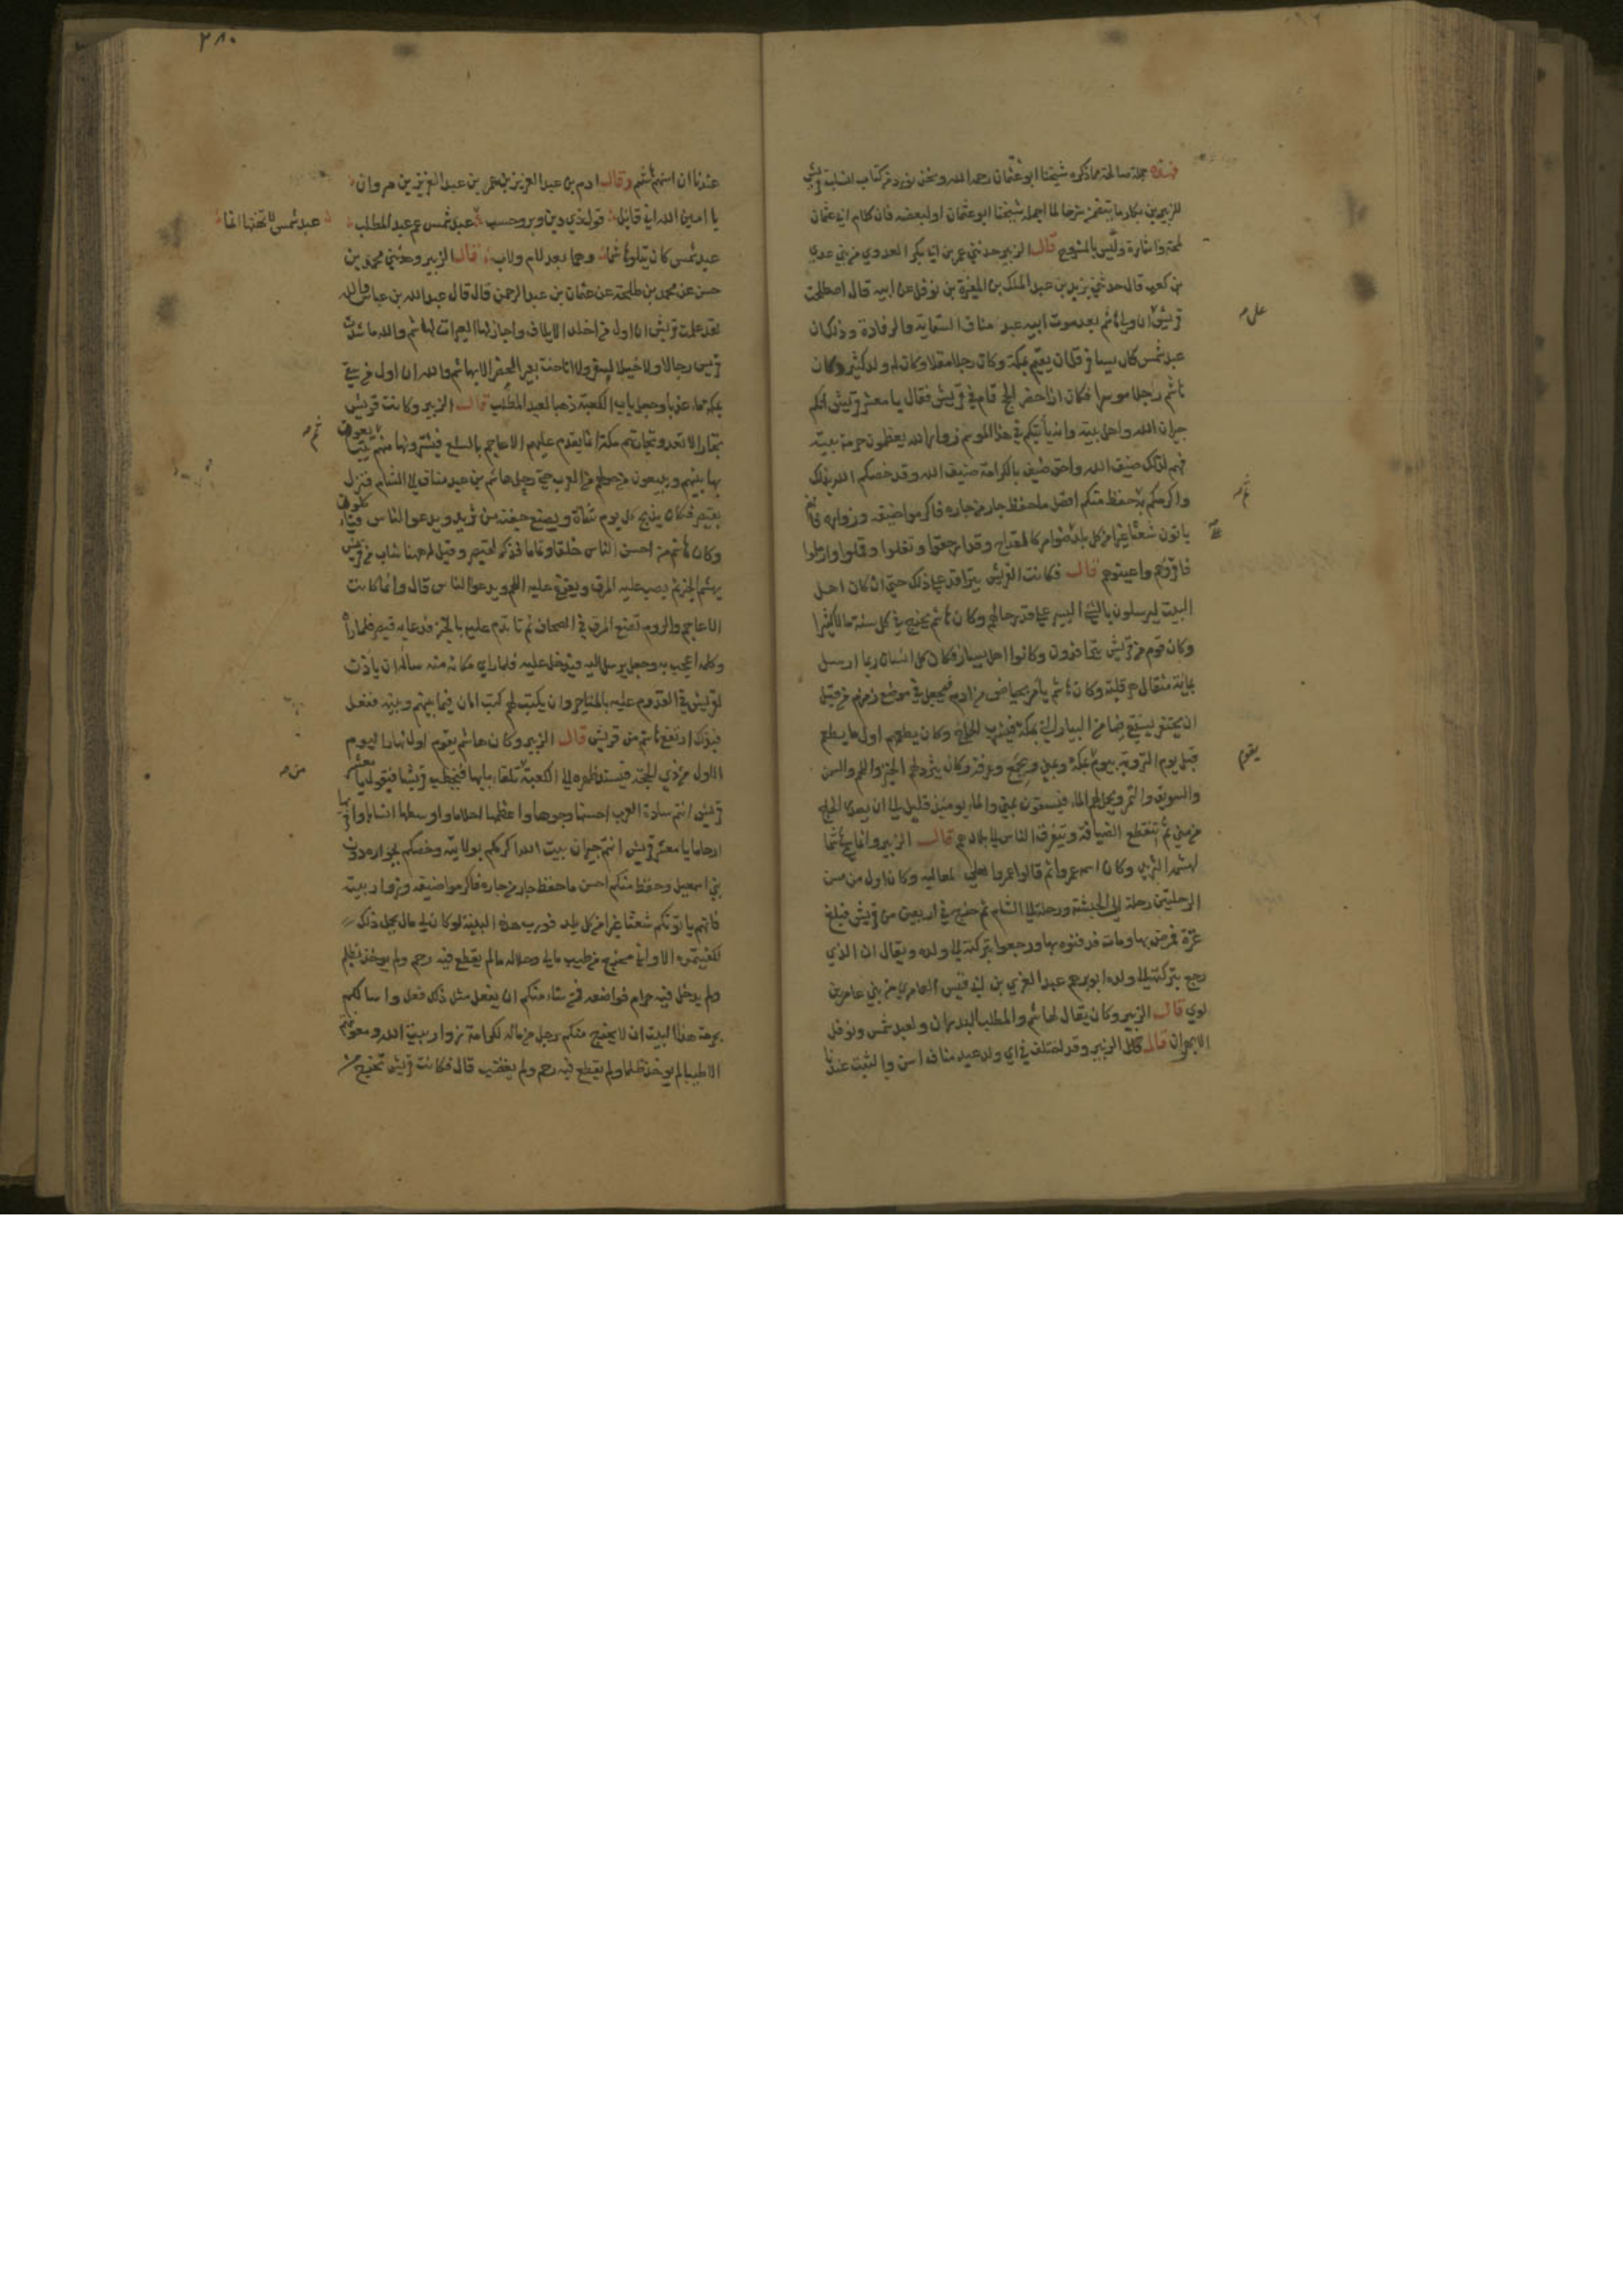 فهذه جملة صالحة مما ذكره شيخنا ابو عثمان رحمه الله ونحن نورد من كتاب انساب قريش
للزبير بن بكار ما يتضمن شرحا لما اجمله شيخنا ابو عثمان او لبعضه فان كلام ابي عثمان
لمحة واشارة وليس بالمشروح قال الزبير حدثني عمر بن ابي بكر العدوي من بني عدي
بن كعب قال حدثني يزيد بن عبد الملك بن المغيرة بن نوفل عن ابيه قال اصطلحت
قريش ان ولي هاشم بعد موت ابيه عبد مناف السقاية والرفادة وذلك ان
على
عبد شمس كان يسافر قل ان يقيم بمكة وكان رجلا مقلا وكان له ولد كثير وكان
هاشم رجلا موسرا فكان اذا حضر الحج قام في قريش فقال يا معشر قريش انكم
جيران الله واهل بيته وانه يأتيكم في هذا الموسم زوار الله يعظمون حرمة بيته
فهم لذلك ضيف الله واحق ضيف بالكرامة ضيف الله وقد خصكم الله بذلك
واكرمكم به ثم حفظ منكم افضل ما حفظ جار من جاره فاكرموا ضيفه وزواره فانهم
ياتون شعثا غبرا من كل بلد ضوامر كالقداح وقد ارجفوا وتفلوا وقملوا وارملوا
فاقروهم واعينوهم قال فكانت القريش تترافد على ذلك حتى ان كان اهل
البيت ليرسلون بالشيء اليسير على قدر حالهم وكان هاشم يخرج في كل سنة مالا كثيرا
وكان قوم من قريش يترافدون وكانوا اهل يسار فكان كل انسان ربما ارسل
بماية مثقال هرقلية وكان هاشم يأمر بحياض من ادم فيجعل في موضع زمزم من قبل
ان يحتفر يستقى فيها من البيار التي بمكة فيشرب الحاج وكان يطعمهم اول ما يطعم
قبل يوم التروية بيوم بمكة وبمنى وبجمع وعرفة وكان يثرد لهم الخبز واللحم والسمن
يقوم
والسويق والتمر ويحمل لهم الماء فيسقون بمنى والماء يومئذ قليل الى ان يصدر الحاج
من منى ثم تنقطع الضيافة ويتفرق الناس الى بلادهم قال الزبير وانما سمي هاشما
لهشمه الثريد وكان اسمه عمرا ثم قالوا عمرو العلى لمعاليه وكان اول من سن
الرحلتين رحلة الى الحبشة ورحلة الى الشام ثم خرج في اربعين من قريش فبلغ
غزة فمرض بها ومات فدفنوه بها ورجعوا بتركته الى ولده ويقال ان الذي
رجع بتركته الى ولده ابو رهم عبد العزي بن ابي قيس العامري من بني عامر بن
لوي قال الزبير وكان يقال لهاشم والمطلب البدران ولعبد شمس ونوفل
الابهران قال الزبير وقد اختلف في اي ولد عبد مناف اسن والثبت عندنا
٢٨٠
عندنا ان اسنهم هاشم وقال ادم بن عبد العزيز بن عمر بن عبد العزيز بن مروان
يا امين الله اني قائل قول ذي دين وبر وحسب عبد شمس عم عبد المطلب
عبد شمس لا تهنها انما
عبد شمس كان يتلو هاشما وهما بعد لام ولاب قال الزبير وحدثني محمد بن
حسن عن محمد بن طلحة عن عثمان بن عبد الرحمن قال قال عبد الله بن عباس والله
لقد علمت قريش ان اول من اخذ الايلاف واجاز لها العيرات لهاشم والله ما شدت
قريش رحالا ولا خيلا لسفر ولا اناخت بعيرا لحضر الا بهاشم والله ان اول من سقى
بمكة ماء عذبا وجعل باب الكعبة ذهبا لعبد المطلب قال الزبير وكانت قريش
تجارا لا تعدو تجارتهم مكة انما يقدم عليهم الاعاجم بالسلع فيشترونها منهم يتبايعون
ثم
بها بينهم ويبيعون من حولهم من العرب حتى رحل هاشم بن عبد مناف الى الشام فنزل
بقيصر فكان يذبح كل يوم شاة ويصنع جفنة من ثريد ويدعوا الناس فيأكلون
وكان هاشم من احسن الناس خلقا وتماما فذكر لقيصر وقيل له ههنا شاب من قريش
يهشم الخبز ثم يصب عليه المرق ويفرغ عليه اللحم ويدعو الناس قال وانما كانت
الاعاجم والروم تصنع المرق في الصحاف ثم تاتدم عليه بالخبز فدعا به قيصر فلما راه
وكلمه اعجب به وجعل يرسل اليه فيدخل عليه فلما راي مكانه منه ساله ان يأذن
لقريش في القدوم عليه بالمتاجر وان يكتب لهم كتب الامان فيما بينهم وبينه ففعل
فبذلك ارتفع هاشم من قريش قال الزبير وكان هاشم يقوم اول نهار اليوم
الاول من ذي الحجة فيسند ظهره الى الكعبة تلقاء بابها فيخطب قريشا فيقول يا معشر
من
قريش انتم سادة العرب احسنها وجوها واعظمها احلاما واوسطها انسابا واقربها
ارحاما يا معشر قريش انتم جيران بيت الله اكرمكم بولايته وخصكم بجواره دون
بني اسمعيل وحفظ منكم احسن ما حفظ جار من جاره فاكرموا ضيفه وزوار بيته
فانهم ياتونكم شعثا غبرا من كل بلد فورب هذه البنية لو كان لي مال يحمل ذلك
لكفيتموه الا واني مخرج من طيب مالي وحلاله ما لم يقطع فيه رحم ولم يوخذ بظلم
ولم يدخل فيه حرام فواضعه فمن شاء منكم ان يفعل مثل ذلك فعل واسالكم
بحرمة هذا البيت ان لا يخرج منكم رجل من ماله لكرامة زوار بيت الله ومعونتهم
الا طيبا لم يوخذ ظلما ولم يقطع فيه رحم ولم يغتصب قال فكانت قريش تخرج من